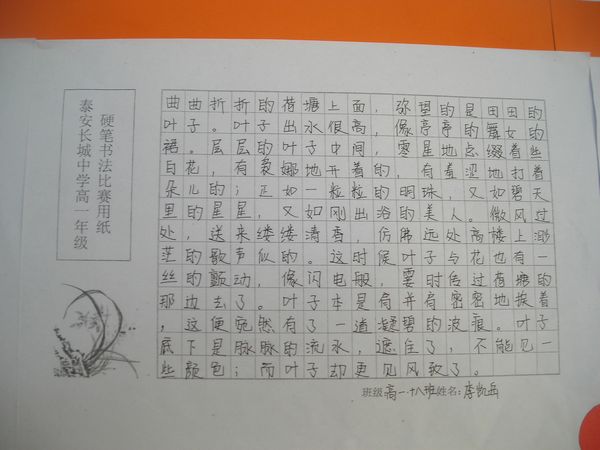 硬笔书法比赛用纸
泰安长城中学高一年级
曲曲折折的荷塘上面，弥望的是田田的
叶子。叶子出水很高，像亭亭的舞女的
裙。层层的叶子中间，零星地点缀着些
白花，有袅娜地开着的，有羞涩地打着
朵儿的；正如一粒粒的明珠，又如碧天
里的星星，又如刚出浴的美人。微风过
处，送来缕缕清香，仿佛远处高楼上渺
茫的歌声似的。这时候叶子与花也有一
丝的颤动，像闪电般，霎时传过荷塘的
那边去了。叶子本是肩并肩密密地挨着
，这便宛然有了一道凝碧的波痕。叶子
底下是脉脉的流水，遮住了，不能见一
些颜色；而叶子却更见风致了。
班级高一.十八班姓名:李凯岳